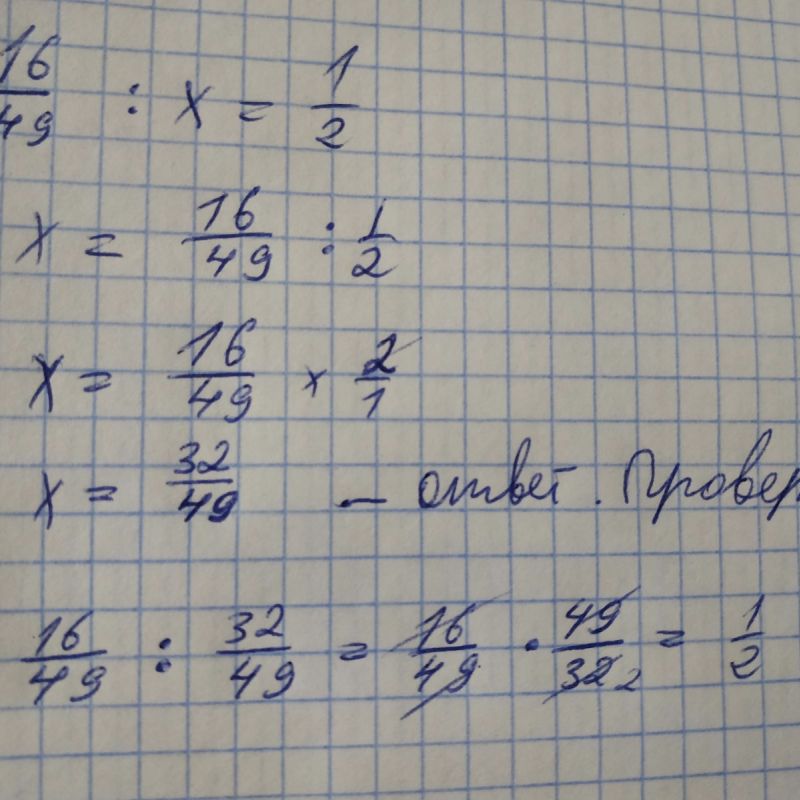 16/49 : x = 1/2
x = 16/49 : 1/2
x = 16/49 × 2/1
x = 32/49 – ответ. Провер
16/49 : 32/49 = 16/49 · 49/32 2 = 1/2